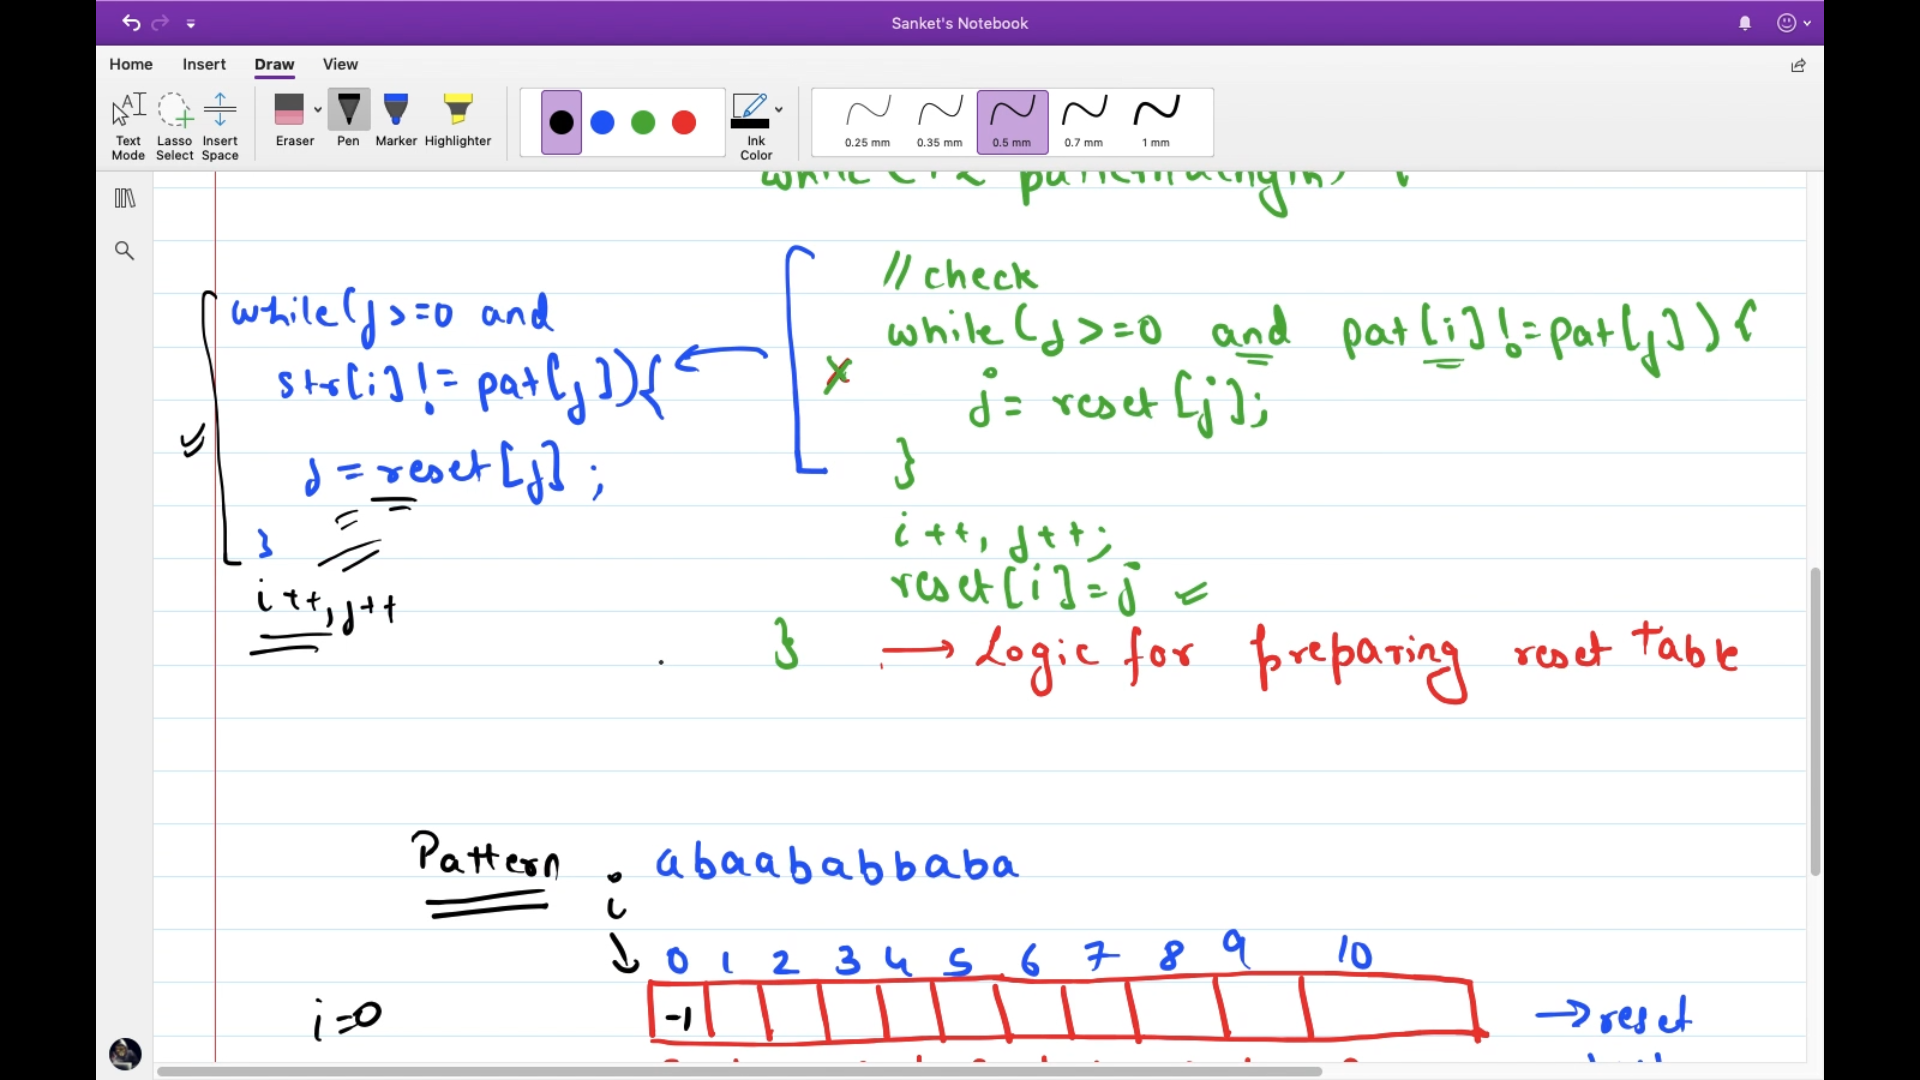 Sanket's Notebook
Home Insert Draw View
Text Mode
Lasso Select
Insert Space
Eraser
Pen
Marker
Highlighter
Ink Color
0.25 mm
0.35 mm
0.5 mm
0.7 mm
1 mm
while(j>=0 and
str[i]!=pat[j]){
j = reset[j];
}
i++, j++
// check
while(j>=0 and pat[i]!=pat[j]){
j = reset[j];
}
i++, j++;
reset[i]=j
}
→ Logic for preparing reset table
Pattern
abaababbaba
i
0 1 2 3 4 5 6 7 8 9 10
i=0
-1
→ reset